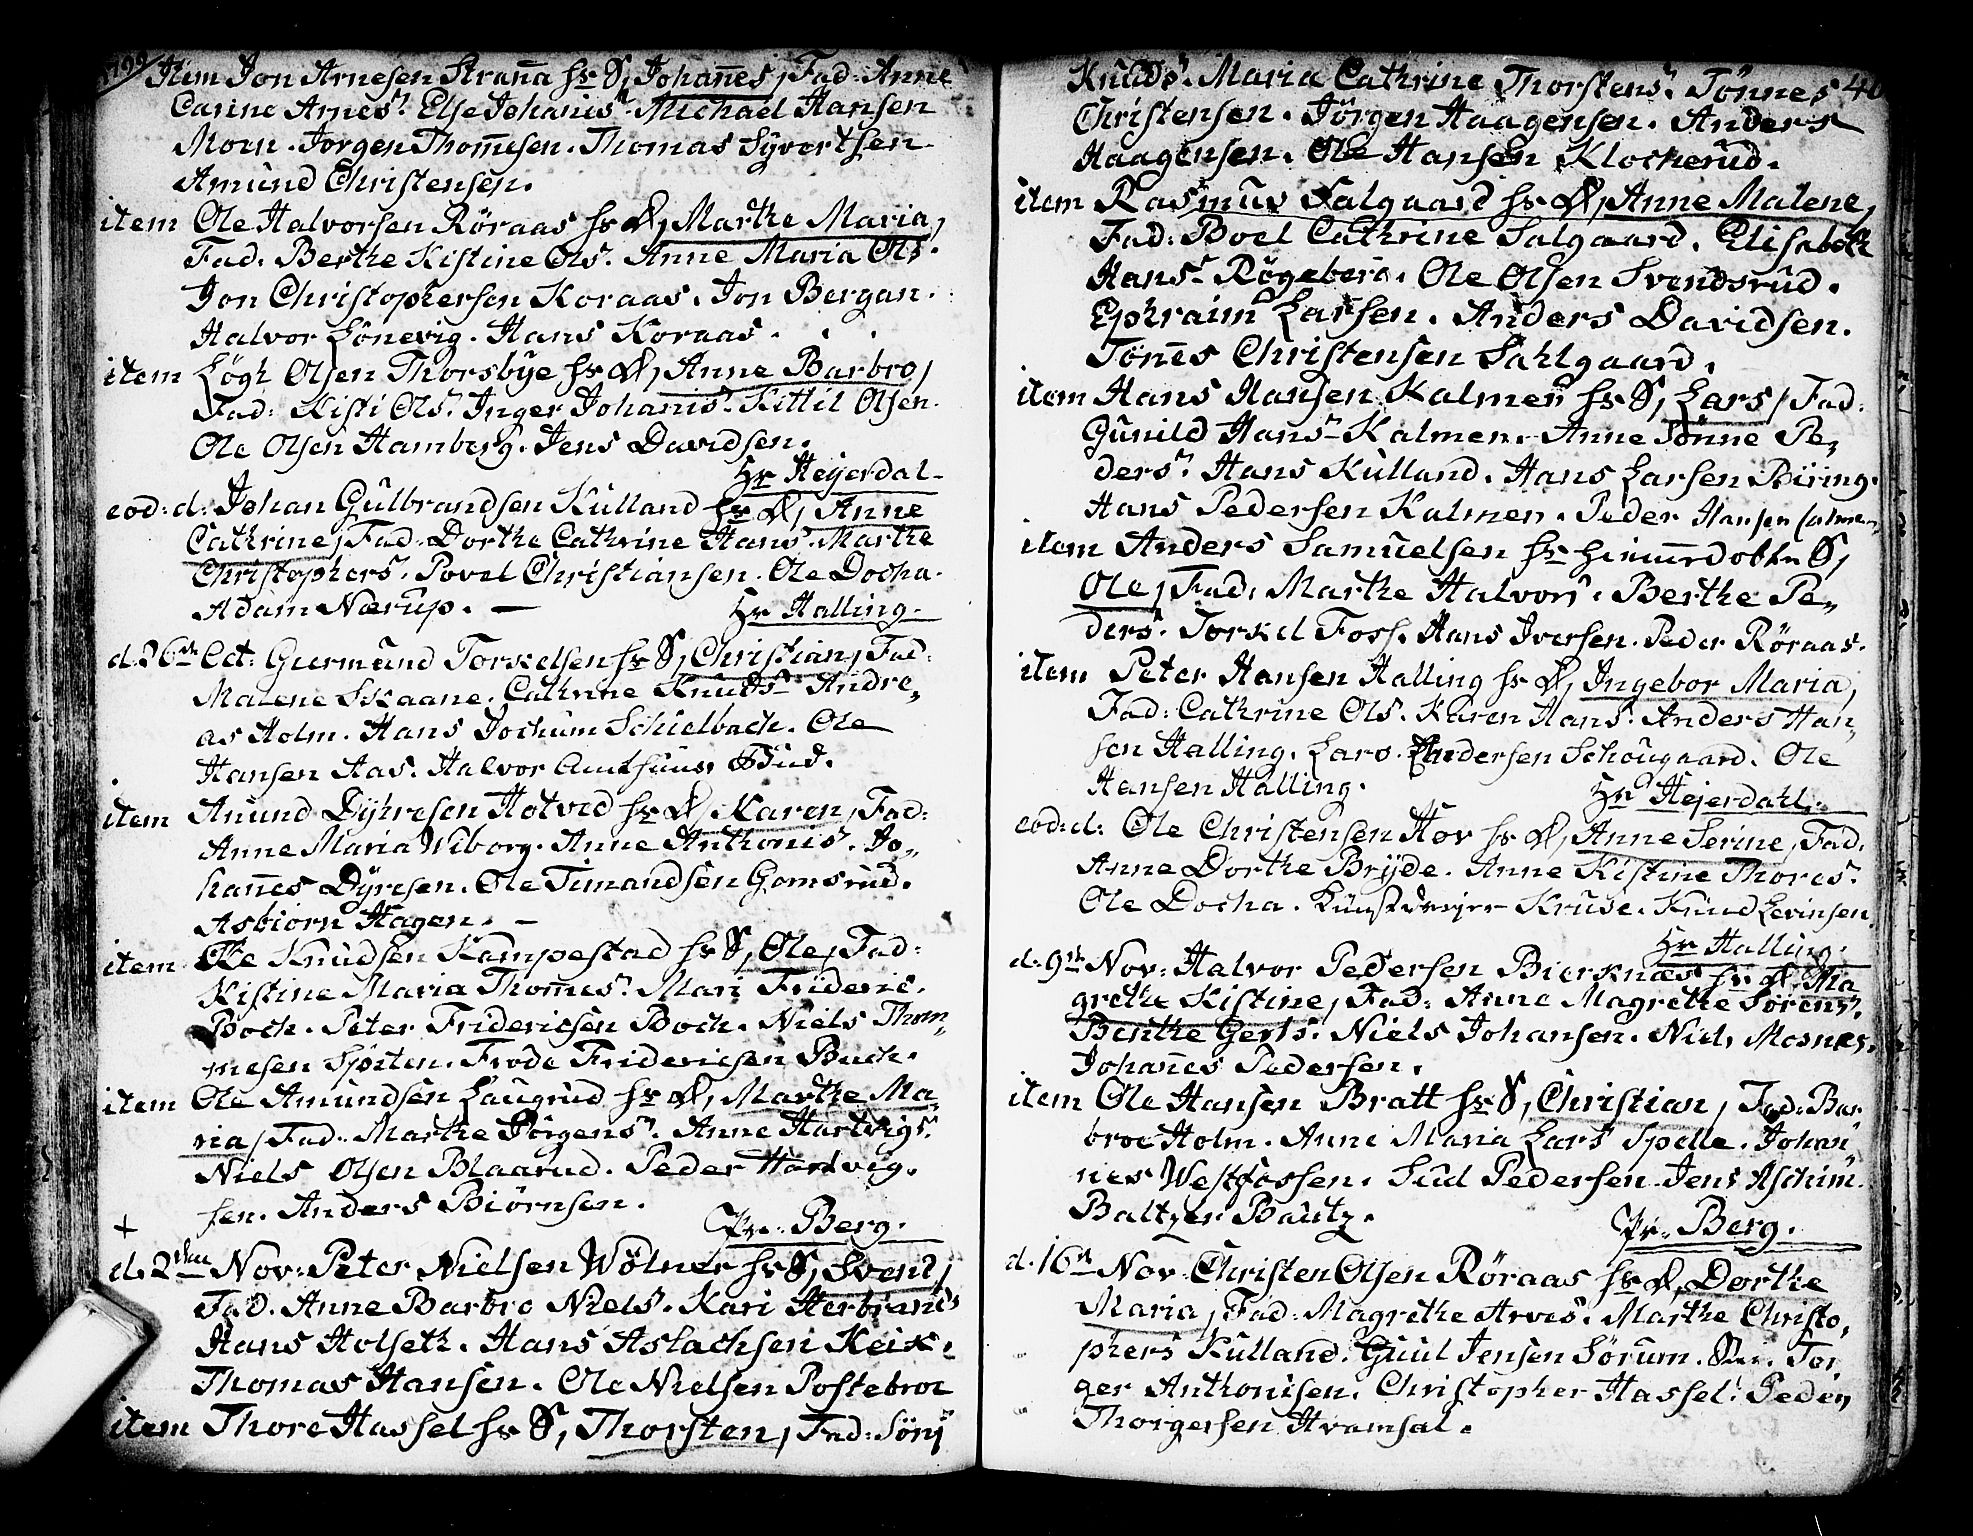 1799
Item Jon Arnesen Strana hs S, Johannes, Fad: Anne
Carine Arnes. Else Johanes. Michael Hansen
Moen. Jorgen Thommesen. Thomas Syvertsen.
Amund Christensen.
item Ole Halvorsen Röraas hs D, Marthe Maria,
Fad. Berthe Kistine Ols. Anne Maria Ols.
Jon Christophersen Koraas. Jon Bergan.
Halvor Lönevig. Hans Koraas.
item Högh Olsen Thorsbye hs D, Anne Barbro,
Fad: Kisti Ols. Inger Johanis. Kittil Olsen.
Ole Olsen Hamberg. Jens Davidsen.
Hr Heyerdal.
eod: d: Johan Gulbrandsen Kulland hs D, Anne
Cathrine, Fad. Dorthe Cathrine Hans. Marthe
Christophers. Povel Christiansen. Ole Docha.
Adam Nærup.
Hr Halling.
d. 26de Oct: Guermund Torkelsen hs S, Christian, Fad:
Malene Skaane. Cathrine Knuds. Andre,,
as Holm. Hans Jochum Schielbach. Ole
Hansen Aas. Halvor Bud.
item Anund Dyhresen Hotved hs D, Karen, Fad:
Anne Maria Wiborg. Anne Anthonis. Jo,,
hannes Dyresen. Ole Timandsen Gomsrud.
Asbiörn Hagen.
item Ole Knudsen Kampestad hs S, Ole, Fad:
Kistine Maria Thommes. Mari Frideric.
Boch. Peter Fridericsen Boch. Niels Thom,,
mesen Spörten. Frode Fridericsen Buch.
item Ole Amundsen Laugrud hs D, Marthe Ma,,
ria, Fad: Marthe Jörgens. Anne Hartvigs.
Niels Olsen Blaarud. Peder Hartvig,
sen. Anders Biörnsen.
Pr. Berg.
d. 2den Nov: Peter Nielsen Wölner hs S, Svend,
Fad. Anne Barbro Niels. Kari Herbrands
Hans Holseth. Hans Aslachsen Keix.
Thomas Hansen. Ole Nielsen Postebroe
item Thore Hassel hs S, Thorsten, Fad: Sönj
40
Knuds. Maria Cathrine Thorstens. Tönnes
Christensen. Jörgen Haagensen. Anders
Haagensen. Ole Hansen Klocherud.
item Rasmus Salgaard hs D, Anne Malene,
Fad: Boel Cathrine Salgaard. Elisabeth
Hans. Rögeberg. Ole Olsen Svendsrud.
Ephraim Larsen. Anders Davidsen.
Tönnes Christensen Sahlgaard.
item Hans Hansen Kalmen hs S, Lars, Fad:
Gunild Hans. Kalmen. Anne Sönne Pe,,
ders. Hans Kulland. Hans Larsen Büring.
Hans Pedersen Kalmen. Peder Hansen Calmen
item Anders Samuelsen hs S,
Ole, Fad. Marthe Halvors. Berthe Pe,,
ders. Torkel Foss. Hans Iversen. Peder Röraas.
item Peter Hansen Halling hs D, Ingebor Maria,
Fad: Cathrine Ols. Karen Hans. Anders Han,,
sen Halling. Lars Andersen Schougaard. Ole
Hansen Halling.
Hr Hejerdahl.
eod: d: Ole Christensen Hov hs D, Anne Serine, Fad.
Anne Dorthe Bryde. Anne Kistine Thores.
Ole Docha. Kruse. Knud Levinsen
Hr Halling.
d. 9de Nov: Halvor Pedersen Bierknæs hs D, Ma
grethe Kistine, Fad: Anne Magrethe Sörens.
Benthe Gerts. Niels Johansen. Niels Mosnes.
Johannes Pedersen.
item Ole Hansen Bratt hs S, Christian, Fad: Bar
broe Holm. Anne Maria Lars Spelle. Johan,,
nes Westfossen. Siul Pedersen. Jens Aschim.
Baltzer Bautz.
Pr. Berg.
d. 16de Nov. Christen Olsen Röraas hs D, Dorthe
Maria, Fad: Magrethe Arves. Marthe Christo,
phers Kulland. Guul Jensen Sörum. Tor
ger Anthonisen. Christopher Hassel. Peder
Thorgersen Hvamsal.